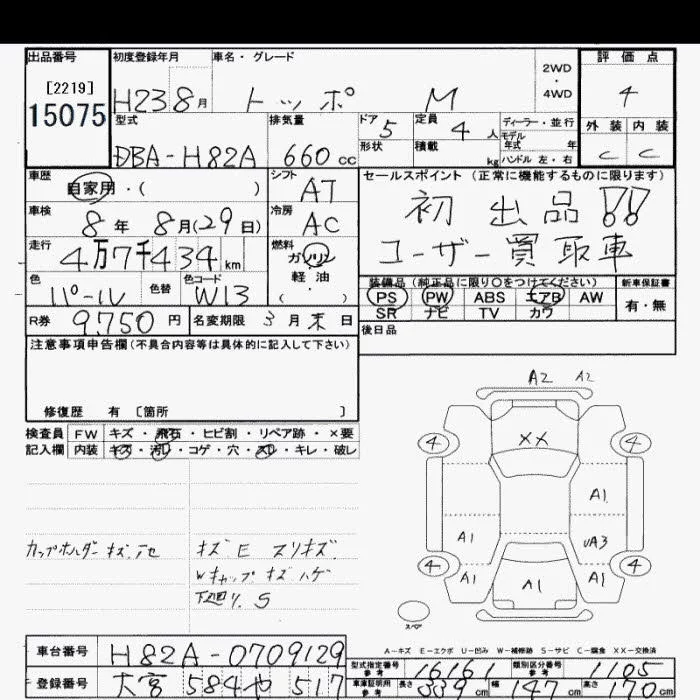 出品番号 初度登録年月 車名・グレード 2WD・4WD 評価点
[2219] H23 8月 トッポ M 4
15075 型式 排気量 ドア 5 定員 4人 ディーラー・並行 外装 内装
DBA-H82A 660cc 形状 積載 kg モデル年式 年 ハンドル 左・右 C C
車歴 自家用・( ) シフト AT セールスポイント(正常に機能するものに限ります)
車検 8年 8月(29日) 冷房 AC 初出品!!
走行 4万7千434km 燃料 ガソリン 軽油 ( ) ユーザー買取車
色 パール 色替 色コード W13 装備品(純正品に限り○をつけてください) 新車保証書
PS PW ABS エアB AW 有・無
R券 9,750円 名変期限 3月末日 SR ナビ TV カワ
注意事項申告欄(不具合内容等は具体的に記入して下さい) 後日品
修復歴 有 [箇所 ]
検査員 FW キズ・飛石・ヒビ割・リペア跡・×要
記入欄 内装 キズ・汚レ・コゲ・穴・スレ・キレ・破レ
A2 A2
4 XX 4
A1
A1 UA3
4 A1 A1 A1 4
スペア
カップホルダー キズ、テセ キズ E スリキズ
Wキャップ キズ ハゲ
下廻り、S
A-キズ E-エクボ U-凹み W-補修跡 S-サビ C-腐食 XX-交換済
車台番号 H82A-0709129 型式指定番号 参考 16161 類別区分番号 参考 1105
登録番号 大宮 584 や 517 車庫証明用 参考 長さ 339cm 幅 147cm 高さ 170cm